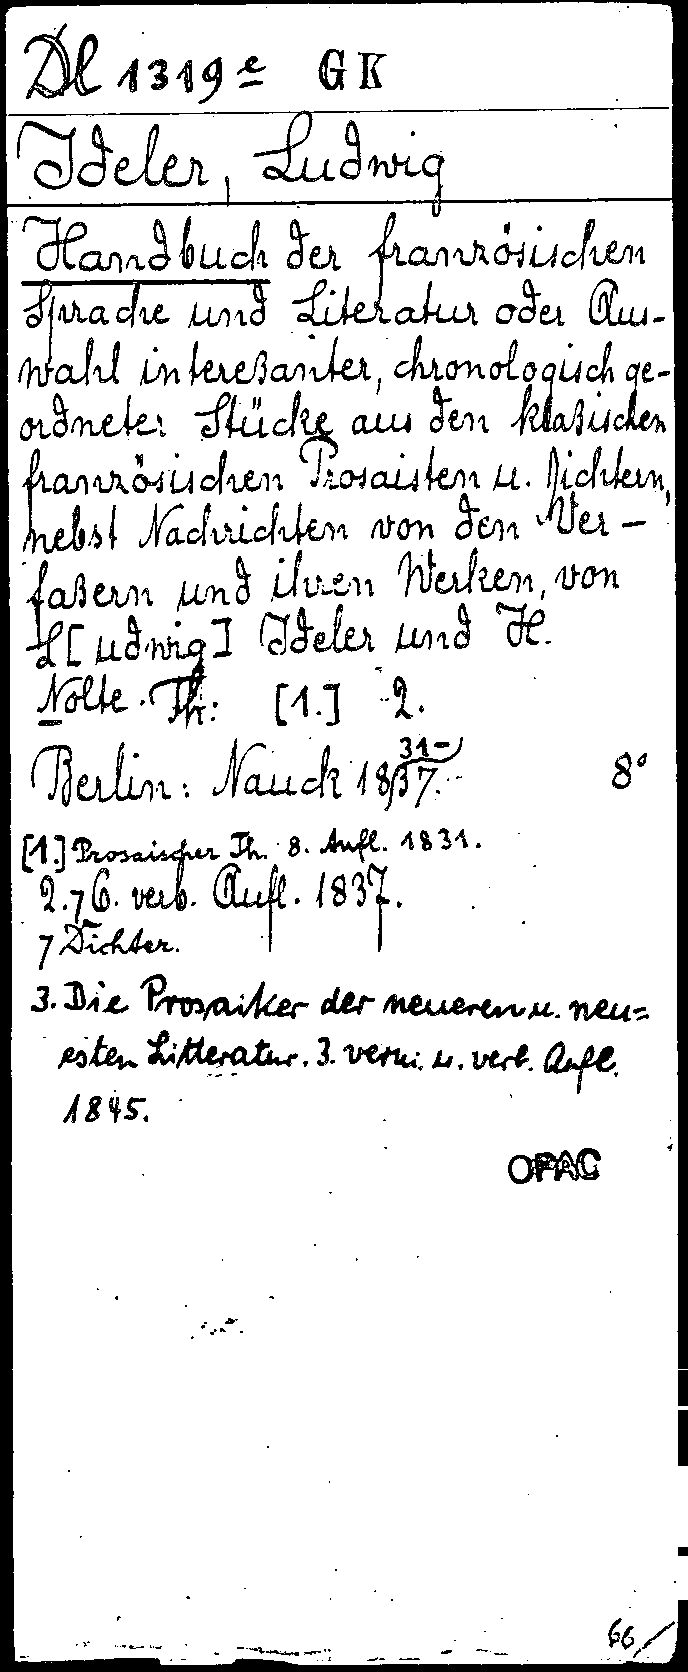 Dl 1319 e GK
Ideler, Ludwig
Handbuch der französischen
Sprache und Literatur oder Aus-
wahl intereßanter, chronologisch ge-
ordneter Stücke aus den klaßischen
französischen Prosaisten u. Dichtern,
nebst Nachrichten von den Ver-
faßern und ihren Werken, von
L[udwig] Ideler und H.
Nolte. Th: [1.] 2.
Berlin: Nauck 1831-37. 8°
[1.] Prosaischer Th. 8. Aufl. 1831.
2. 7 6. verb. Aufl. 1837.
7 Dichter.
3. Die Prosaiker der neueren u. neu=
esten Litteratur. 3. verm. u. verb. Aufl.
1845.
OPAC
66